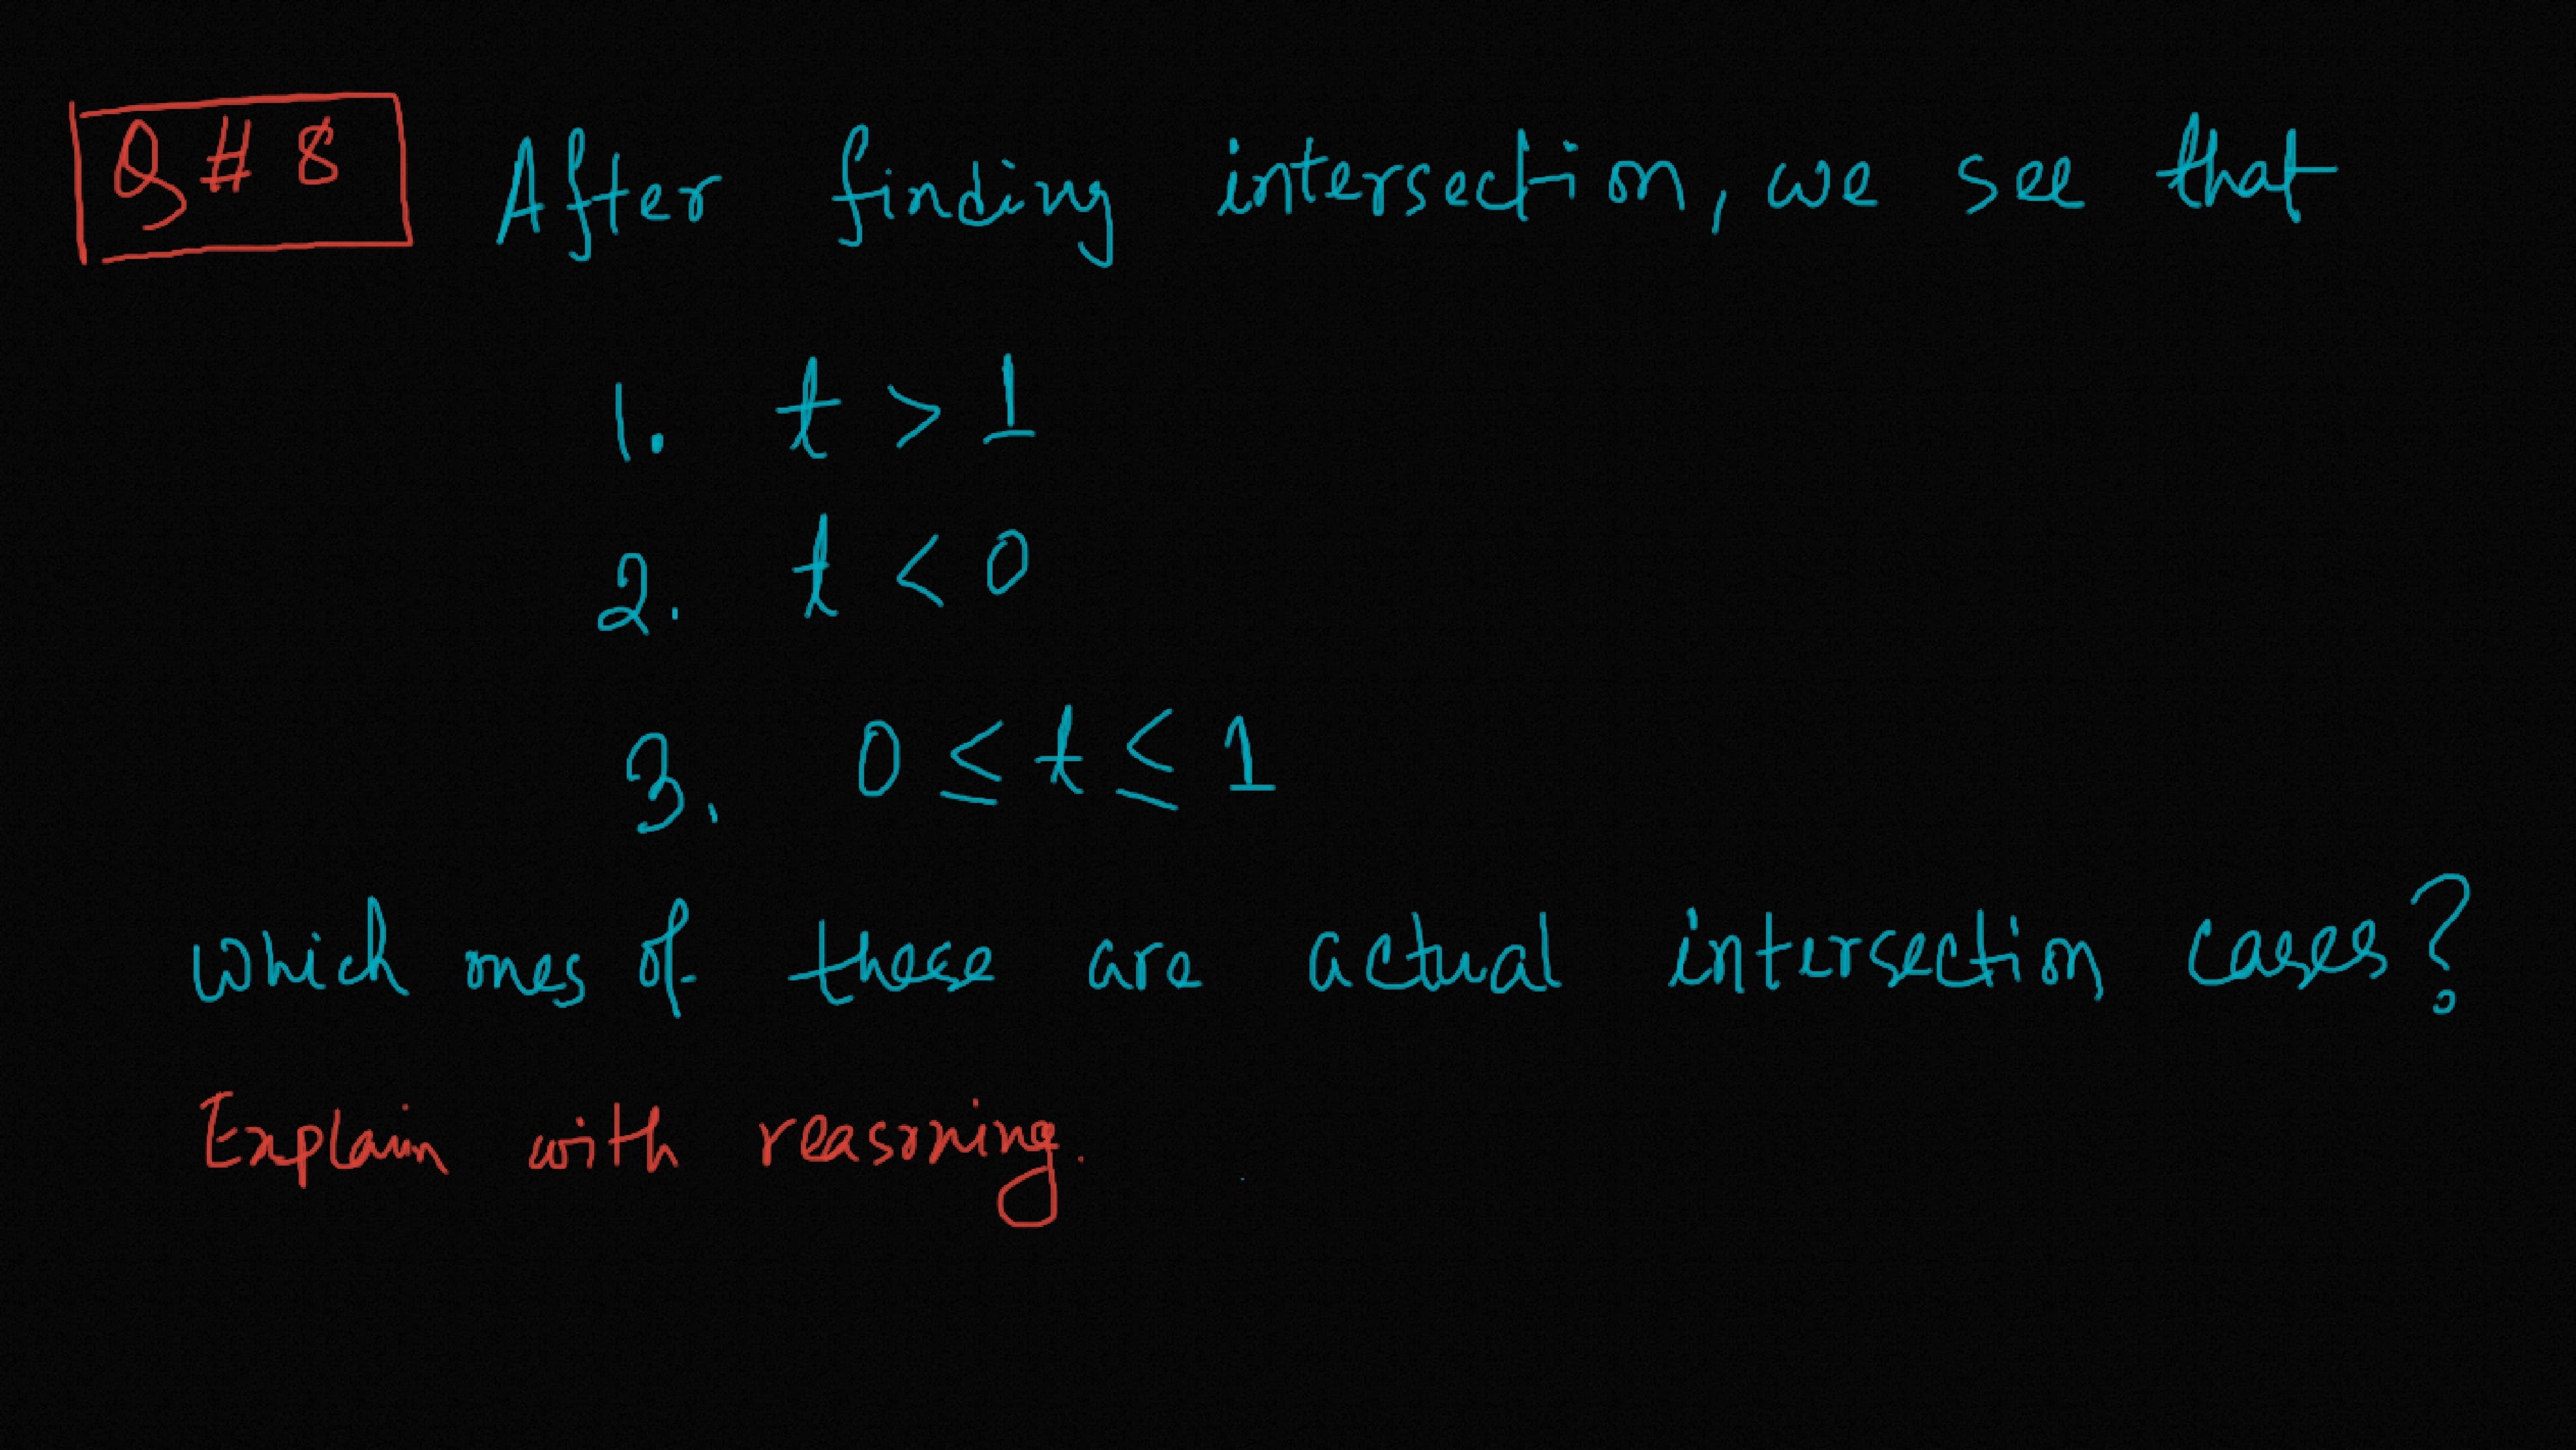 Q # 8 After finding intersection, we see that
1. t > 1
2. t < 0
3. 0 ≤ t ≤ 1
which ones of these are actual intersection cases?
Explain with reasoning.